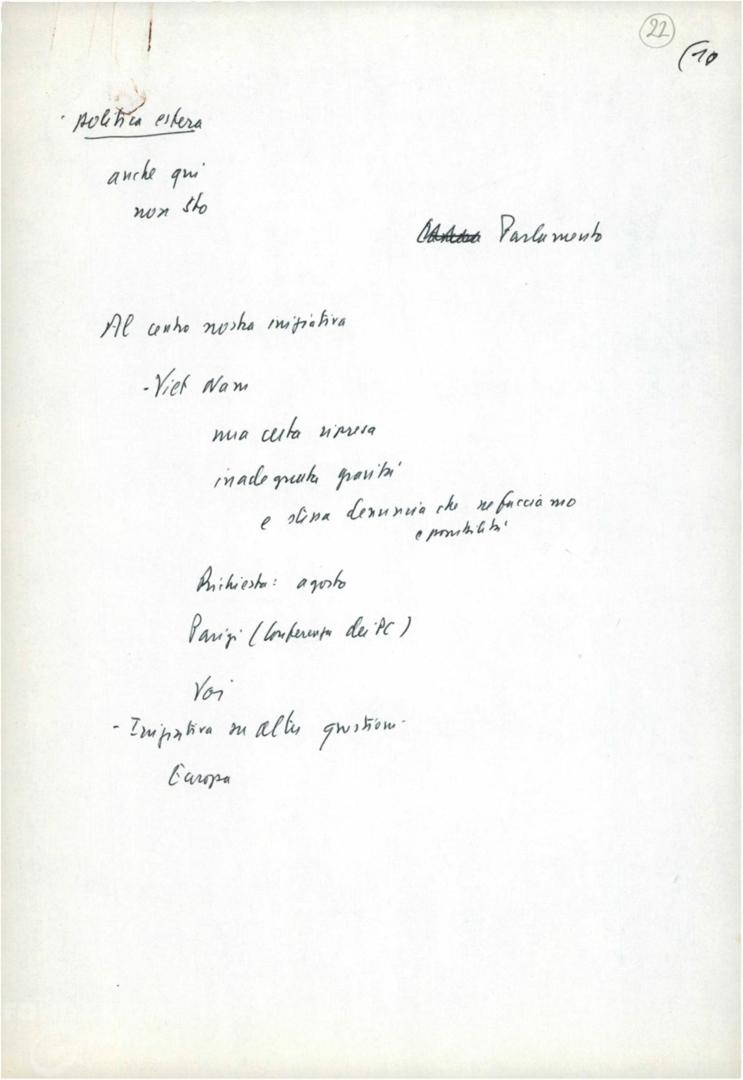 22
(10
· Politica estera
anche qui
non sto
Parlamento
Al centro nostra iniziativa
- Viet Nam
una certa ripresa
inadeguata gravità
e stessa denuncia che ne facciamo
e possibilità
Richiesta: agosto
Parigi (Conferenza dei PC)
Voi
- Iniziativa su altre questioni
Europa